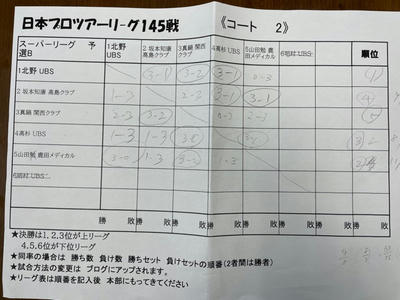 日本プロツアーリーグ145戦 《コート 2》
スーパーリーグ 予選B 1北野 UBS 2 坂本知康 高島クラブ 3真鍋 関西クラブ 4高杉 UBS 5山田勉 鹿田メディカル 順位
1北野 UBS 3-1 3-2 3-1 0-3 1
2 坂本知康 高島クラブ 1-3 2-3 3-1 3-1 4
3真鍋 関西クラブ 2-3 3-2 2-3
4高杉 UBS 1-3 1-3
5山田勉 鹿田メディカル 1-3 1-3
勝 敗 勝 敗 勝 敗 勝 敗 勝 敗 勝 敗
★決勝は1、2,3位が上リーグ
4,5,6位が下位リーグ
★同率の場合は 勝ち数 負け数 勝ちセット 負けセットの順番(2者間は勝者)
★試合方法の変更は ブログにアップされます。
★リーグ表は順番を記入後 本部にもってきてください